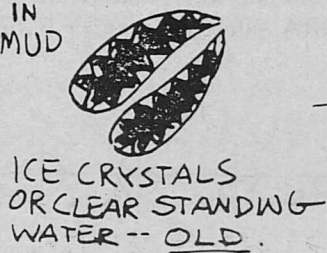 IN
MUD
ICE CRYSTALS
OR CLEAR STANDING
WATER -- OLD.